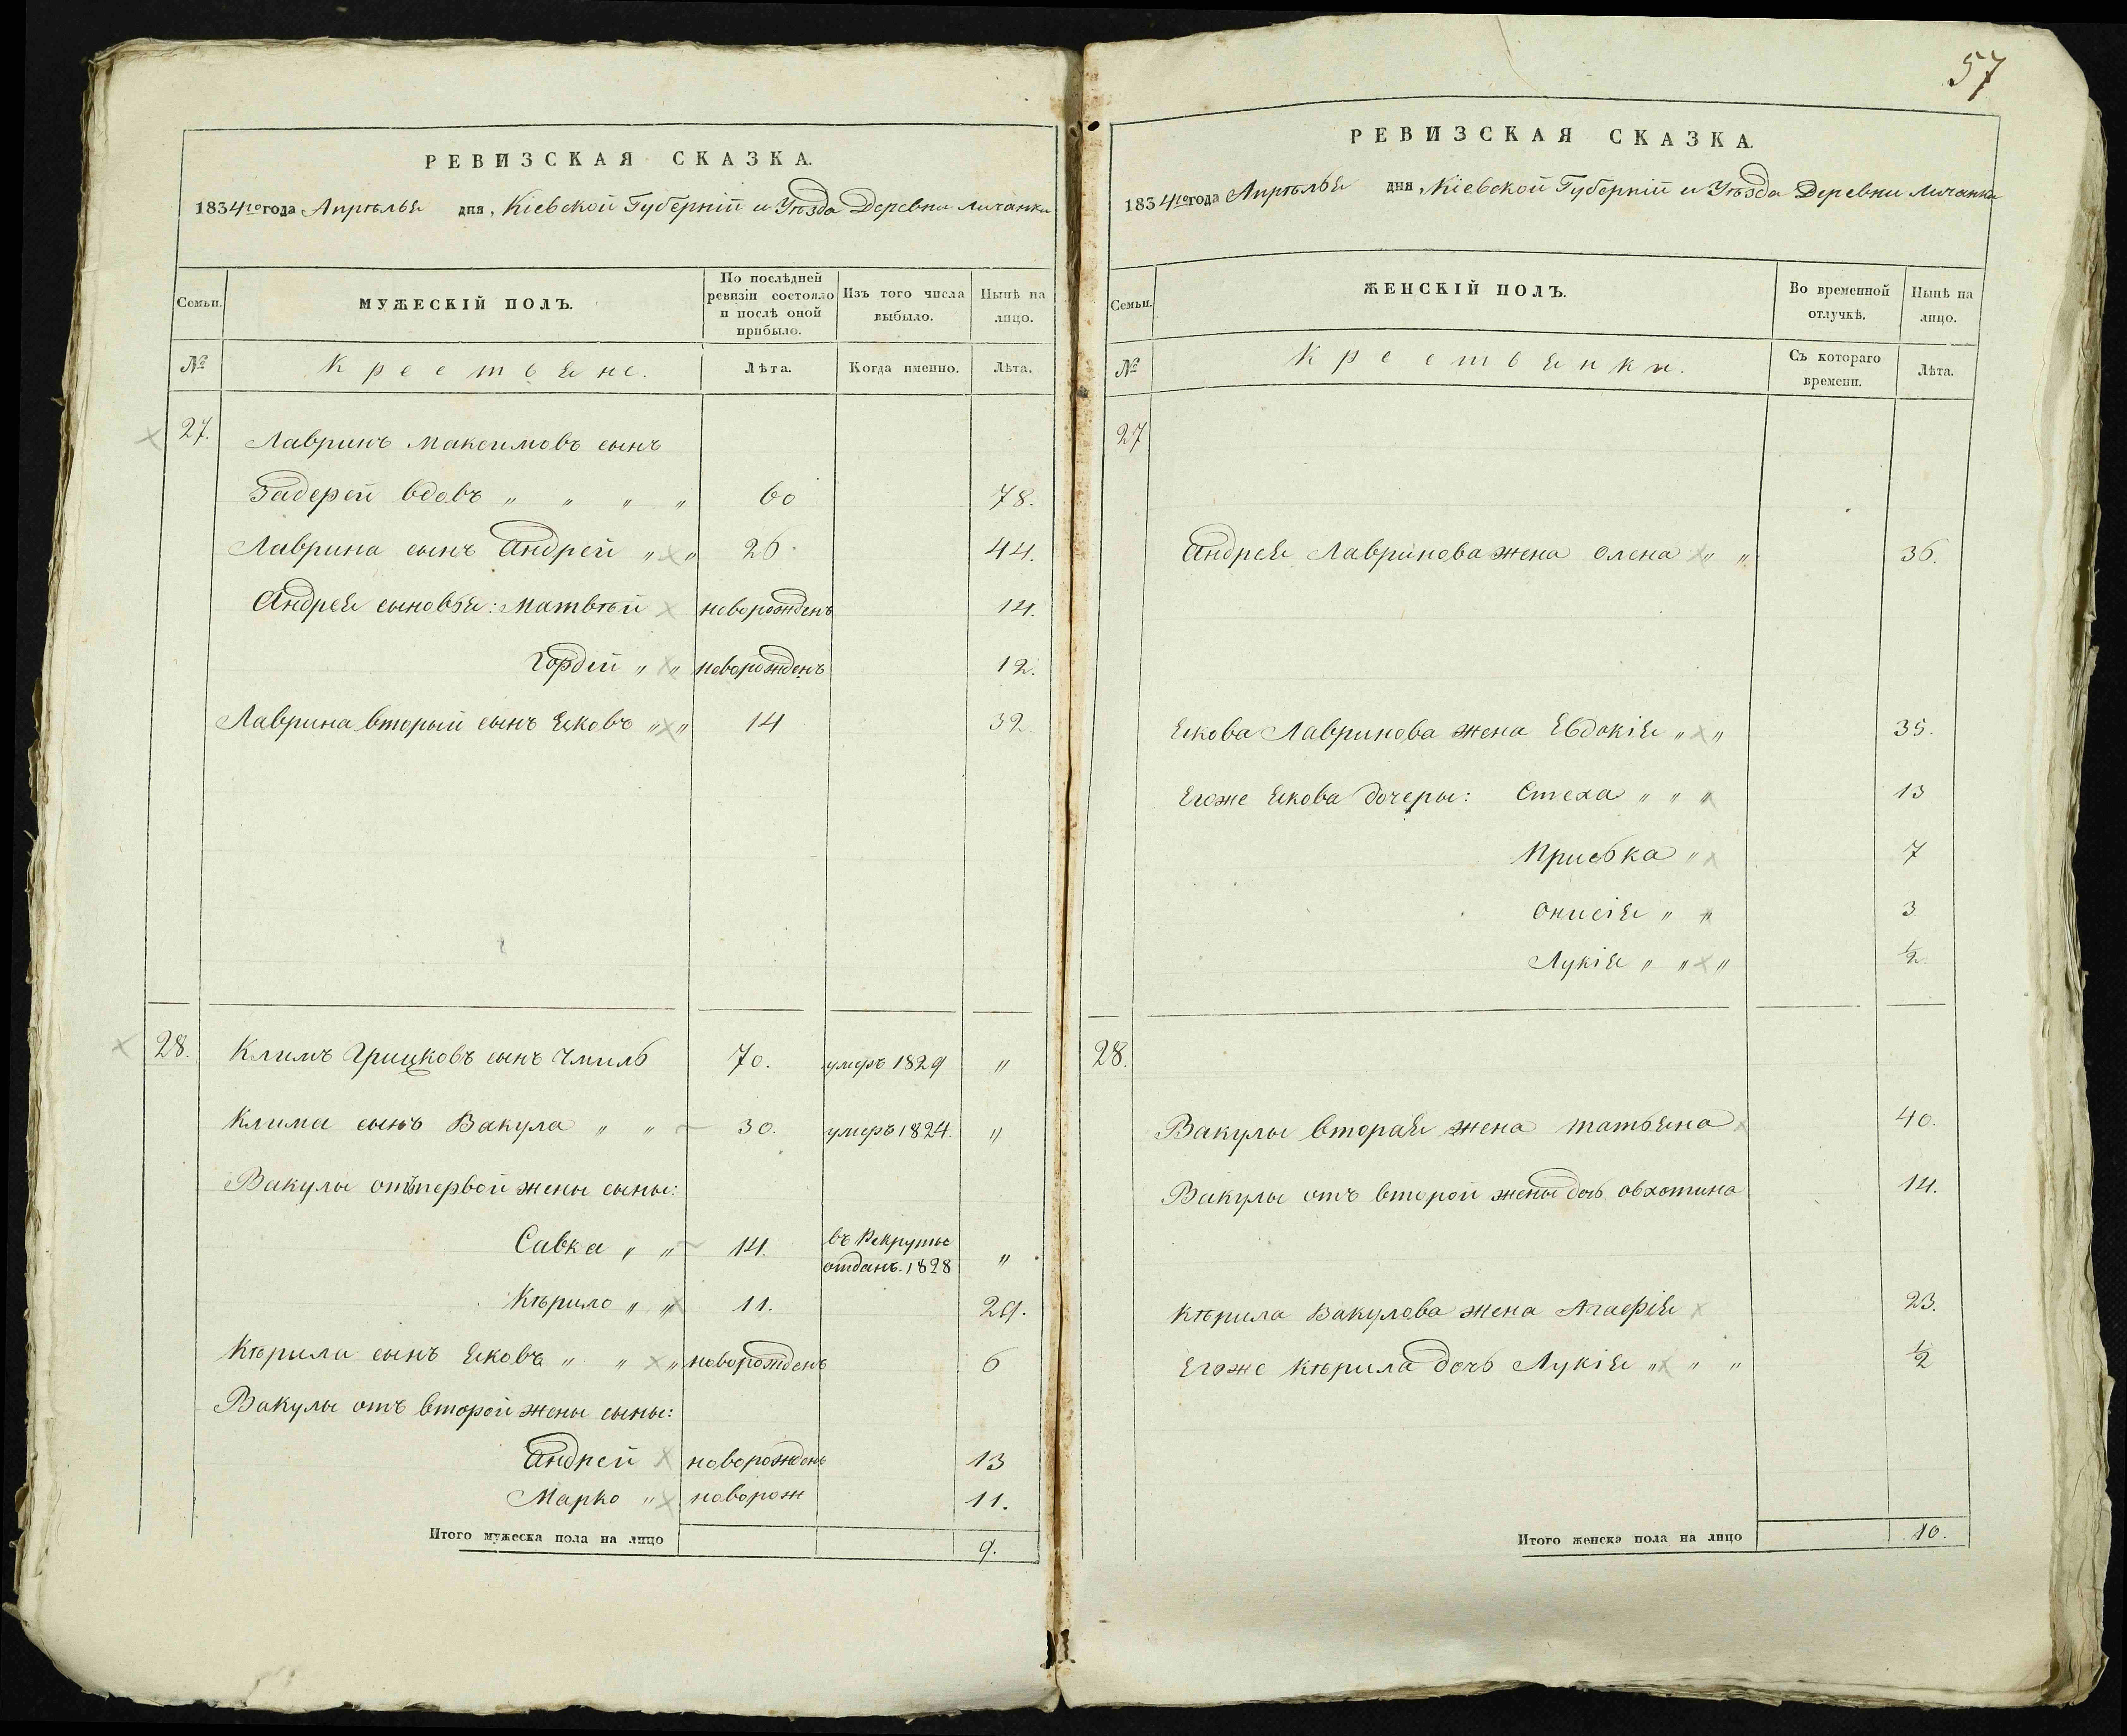 57
РЕВИЗСКАЯ СКАЗКА.
1834го года Апрѣлья дня, Кіевской Губерніи и Уѣзда Деревни Личанки
Семьи. МУЖЕСКІЙ ПОЛЪ. По послѣдней ревизіи состояло и послѣ оной прибыло. Изъ того числа выбыло. Нынѣ на лицо.
№ Крестьяне. Лѣта. Когда именно. Лѣта.
27. Лавринъ Максимовъ сынъ
Задерей вдовъ „ „ „ „ 60 78.
Лаврина сынъ Андрей „ „ 26. 44.
Андрея сыновья: Матвѣй новорожденъ 14.
Гордей „ „ новорожденъ 12.
Лаврина вторый сынъ Яковъ „ „ 14 32
28. Климъ Грицковъ сынъ Чмиль 70. умеръ 1829 „
Клима сынъ Вакула „ „ 30. умеръ 1824. „
Вакулы отъ первой жены сыны:
Савка „ „ 14. въ Рекруты отданъ. 1828 „
Кѣрило „ „ 11. 29.
Кѣрила сынъ Яковъ „ „ „ новорожденъ 6
Вакулы отъ второй жены сыны:
Андрей новорожденъ 13
Марко „ новорож 11.
Итого мужеска пола на лицо 9.
РЕВИЗСКАЯ СКАЗКА.
1834го года Апрѣлья дня, Кіевской Губерніи и Уѣзда Деревни Личанки
Семьи. ЖЕНСКІЙ ПОЛЪ. Во временной отлучкѣ. Нынѣ на лицо.
№ Крестьянки. Съ котораго времени. Лѣта.
27
Андрея Лавринова жена Олена „ „ 36.
Якова Лавринова жена Евдокія „ „ 35.
Егоже Якова дочеры: Стеха „ „ „ 13
Приська „ 7
Онисія „ „ 3
Лукія „ „ „ ½.
28.
Вакулы вторая жена Татьяна 40.
Вакулы отъ второй жены дочь Овхотина 14.
Кѣрила Вакулова жена Агафія 23.
Егоже Кѣрила дочь Лукія „ „ „ ½
Итого женска пола на лицо 10.